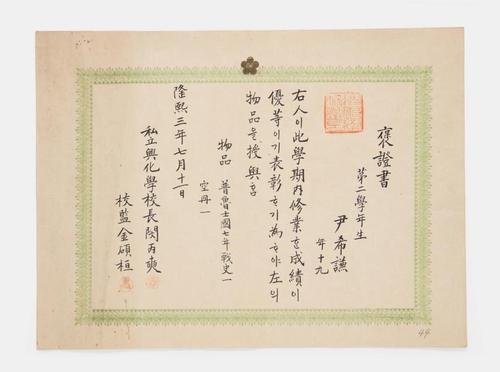 褒證書
第二學年生
尹希謙
年十九
右人이此學期內修業ᄒᆞᆫ成績이
優等이기表彰ᄒᆞ기爲ᄒᆞ야左의
物品을授與홈
物品 普魯士國七年戰史一
空冊一
隆熙三年七月十一日
私立興化學校長閔丙奭
校監金碩桓
49